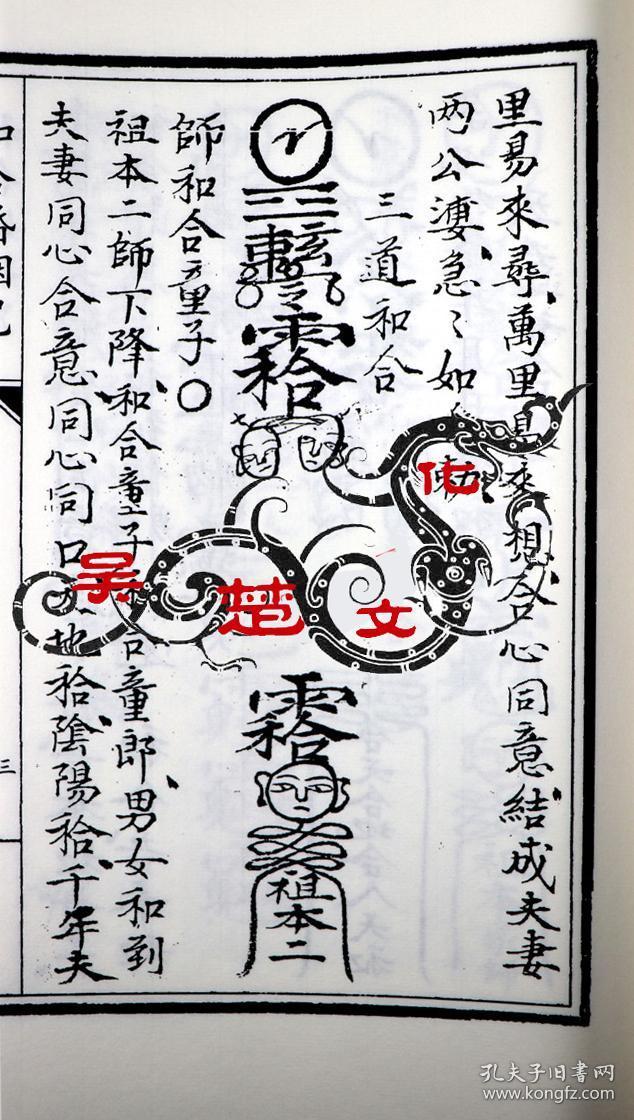 里易來尋萬里易來想合心同意結成夫妻
两公凄急〻如
三道和合
祖本二
師和合童子〇
祖本二師下降和合童子和合童郎男女和到
夫妻同心合意同心同口 地袷陰陽袷千年夫
和合婚姻
三
吴楚文化
孔夫子旧书网
www.kongfz.com